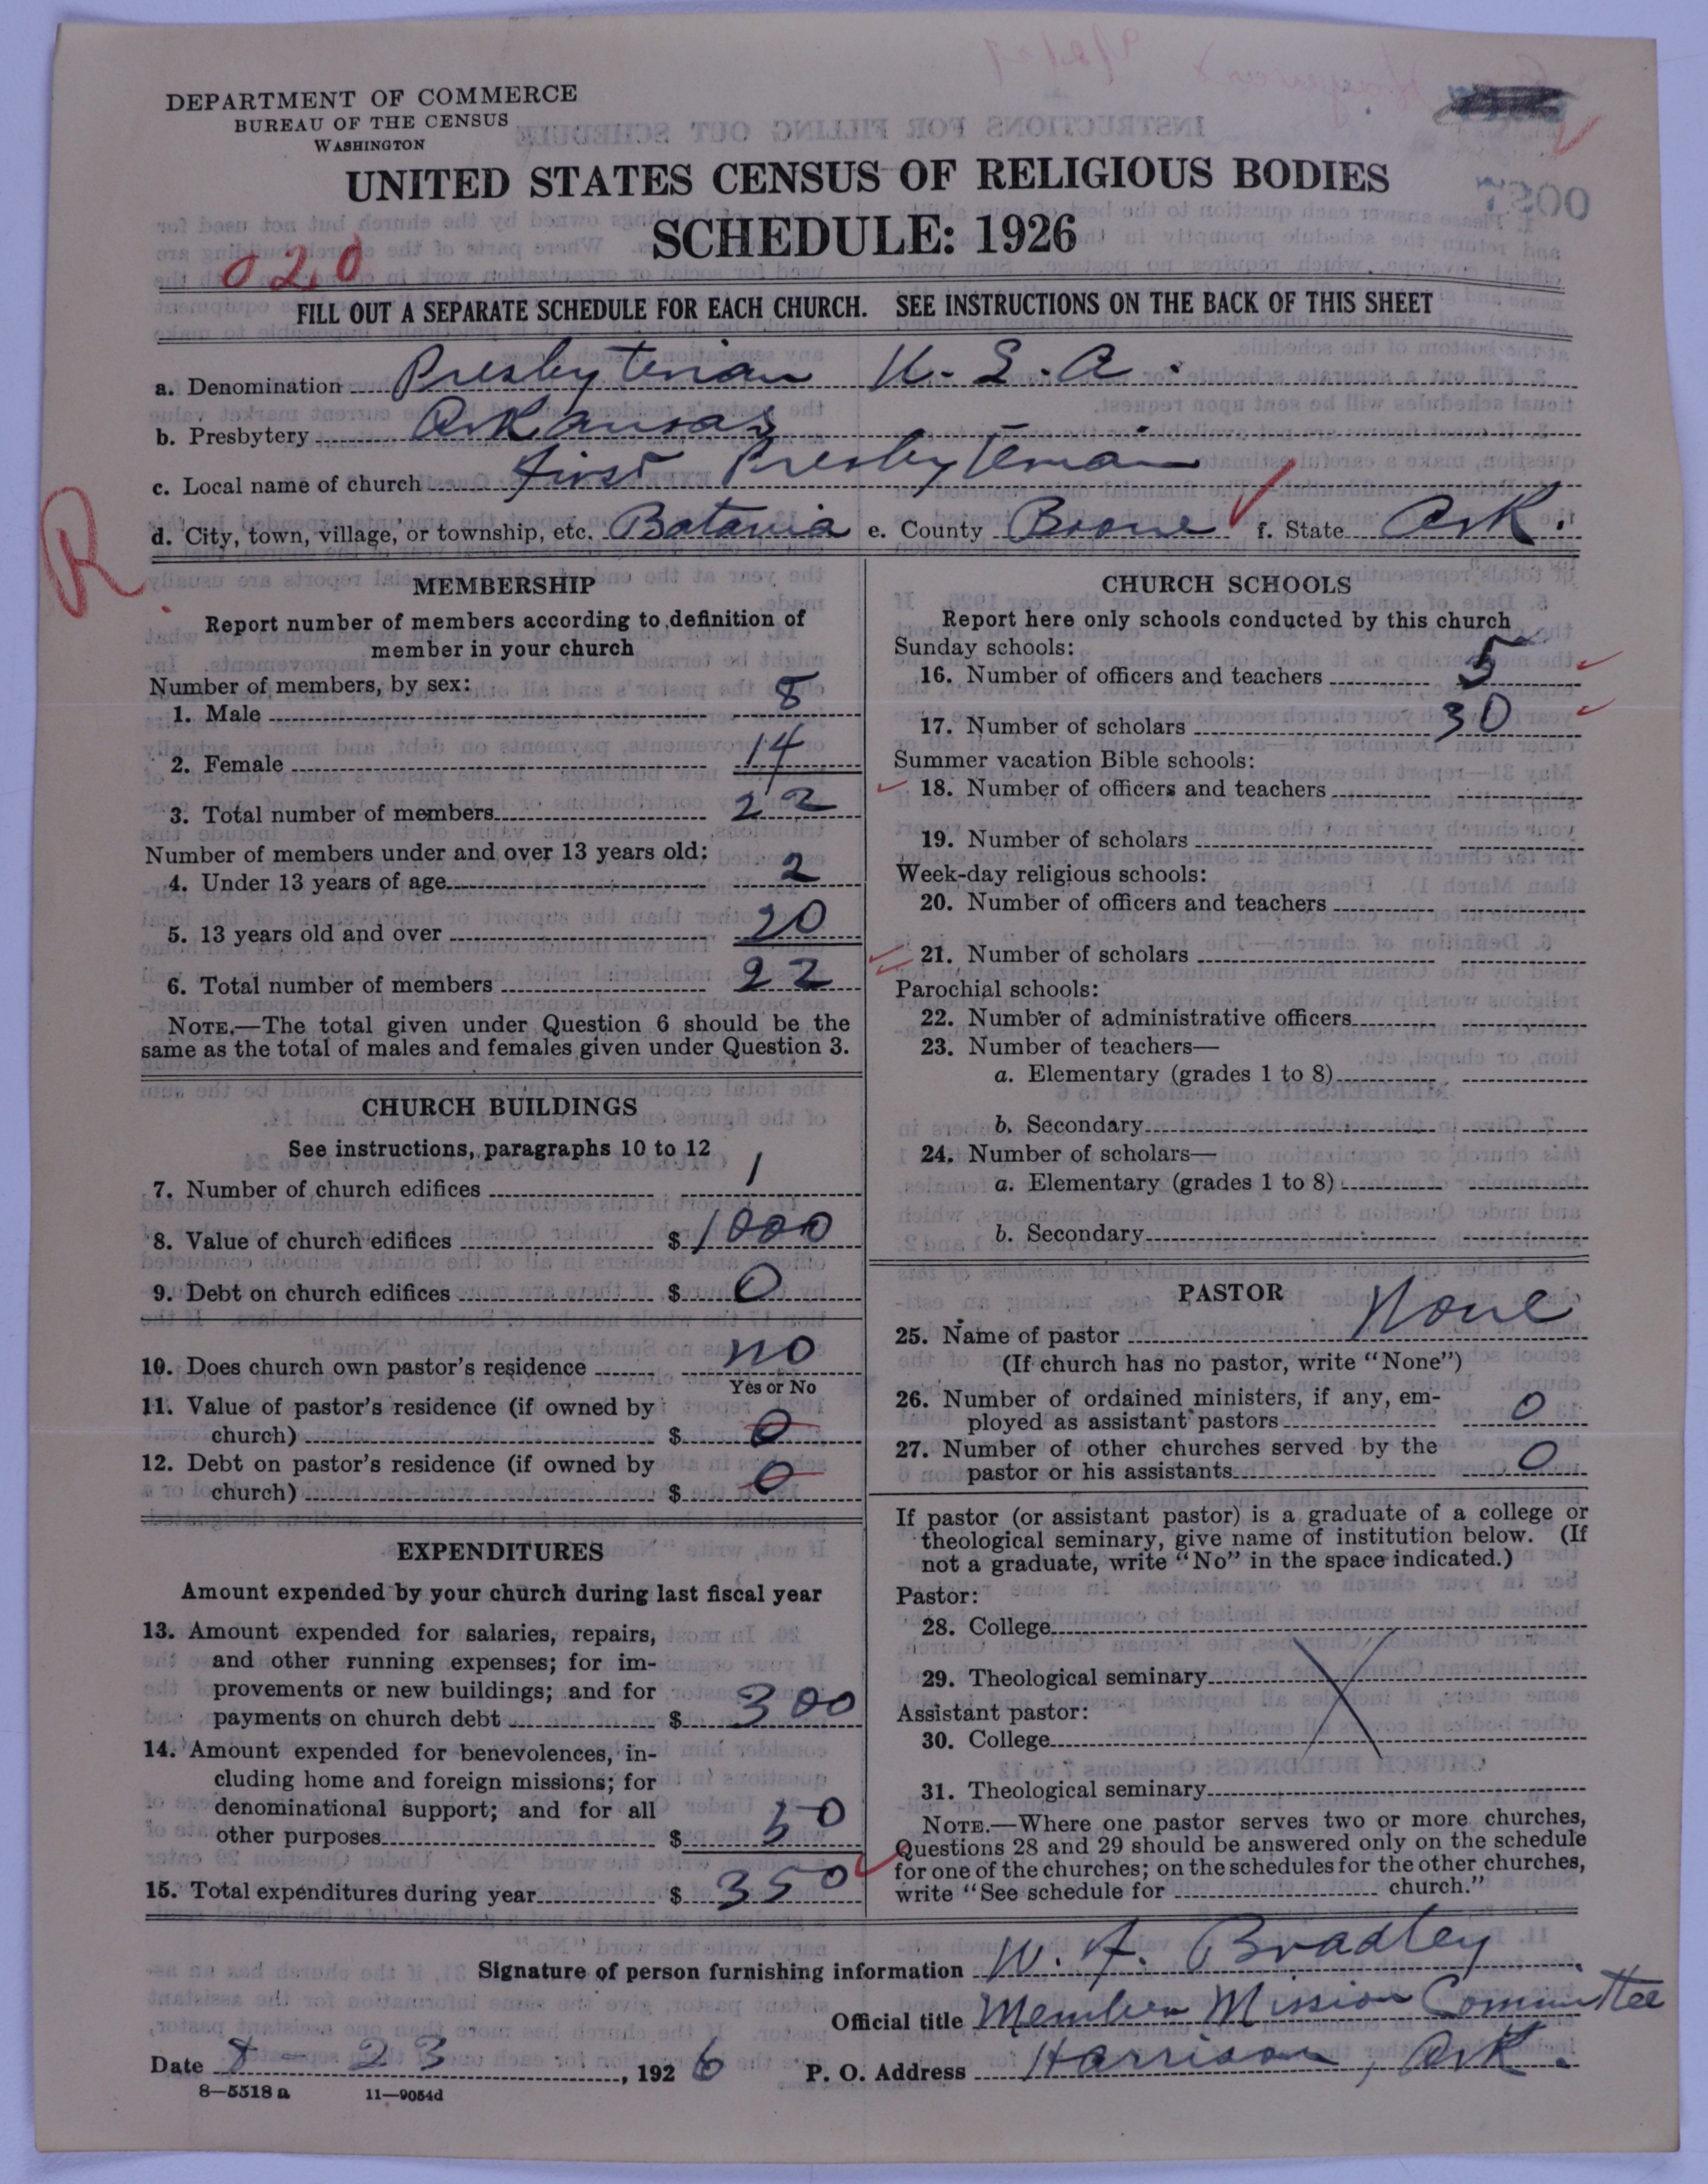 DEPARTMENT OF COMMERCE
BUREAU OF THE CENSUS
WASHINGTON
UNITED STATES CENSUS OF RELIGIOUS BODIES
SCHEDULE: 1926
020
FILL OUT A SEPARATE SCHEDULE FOR EACH CHURCH. SEE INSTRUCTIONS ON THE BACK OF THIS SHEET
a. Denomination Presbyterian U.S.A.
b. Presbytery Arkansas
c. Local name of church first Presbyterian
d. City, town, village, or township, etc. Batavia e. County Boone f. State Ark.
R.
MEMBERSHIP
Report number of members according to definition of
member in your church
Number of members, by sex:
1. Male 8
2. Female 14
3. Total number of members 22
Number of members under and over 13 years old:
4. Under 13 years of age 2
5. 13 years old and over 20
6. Total number of members 22
NOTE.—The total given under Question 6 should be the
same as the total of males and females given under Question 3.
CHURCH BUILDINGS
See instructions, paragraphs 10 to 12
7. Number of church edifices 1
8. Value of church edifices $ 1000
9. Debt on church edifices $ 0
10. Does church own pastor's residence no
Yes or No
11. Value of pastor's residence (if owned by
church) $ 0
12. Debt on pastor's residence (if owned by
church) $ 0
EXPENDITURES
Amount expended by your church during last fiscal year
13. Amount expended for salaries, repairs,
and other running expenses; for im-
provements or new buildings; and for
payments on church debt $ 300
14. Amount expended for benevolences, in-
cluding home and foreign missions; for
denominational support; and for all
other purposes $ 50
15. Total expenditures during year $ 350
CHURCH SCHOOLS
Report here only schools conducted by this church
Sunday schools:
16. Number of officers and teachers 5
17. Number of scholars 30
Summer vacation Bible schools:
18. Number of officers and teachers
19. Number of scholars
Week-day religious schools:
20. Number of officers and teachers
21. Number of scholars
Parochial schools:
22. Number of administrative officers
23. Number of teachers—
a. Elementary (grades 1 to 8)
b. Secondary
24. Number of scholars—
a. Elementary (grades 1 to 8)
b. Secondary
PASTOR
25. Name of pastor None
(If church has no pastor, write "None")
26. Number of ordained ministers, if any, em-
ployed as assistant pastors 0
27. Number of other churches served by the
pastor or his assistants 0
If pastor (or assistant pastor) is a graduate of a college or
theological seminary, give name of institution below. (If
not a graduate, write "No" in the space indicated.)
Pastor:
28. College
29. Theological seminary
Assistant pastor:
30. College
31. Theological seminary
NOTE.—Where one pastor serves two or more churches,
Questions 28 and 29 should be answered only on the schedule
for one of the churches; on the schedules for the other churches,
write "See schedule for church."
Signature of person furnishing information W. A. Bradley
Official title Member Mission Committee
Date 8 - 23, 1926 P. O. Address Harrison, Ark.
8—5518 a 11—9054d